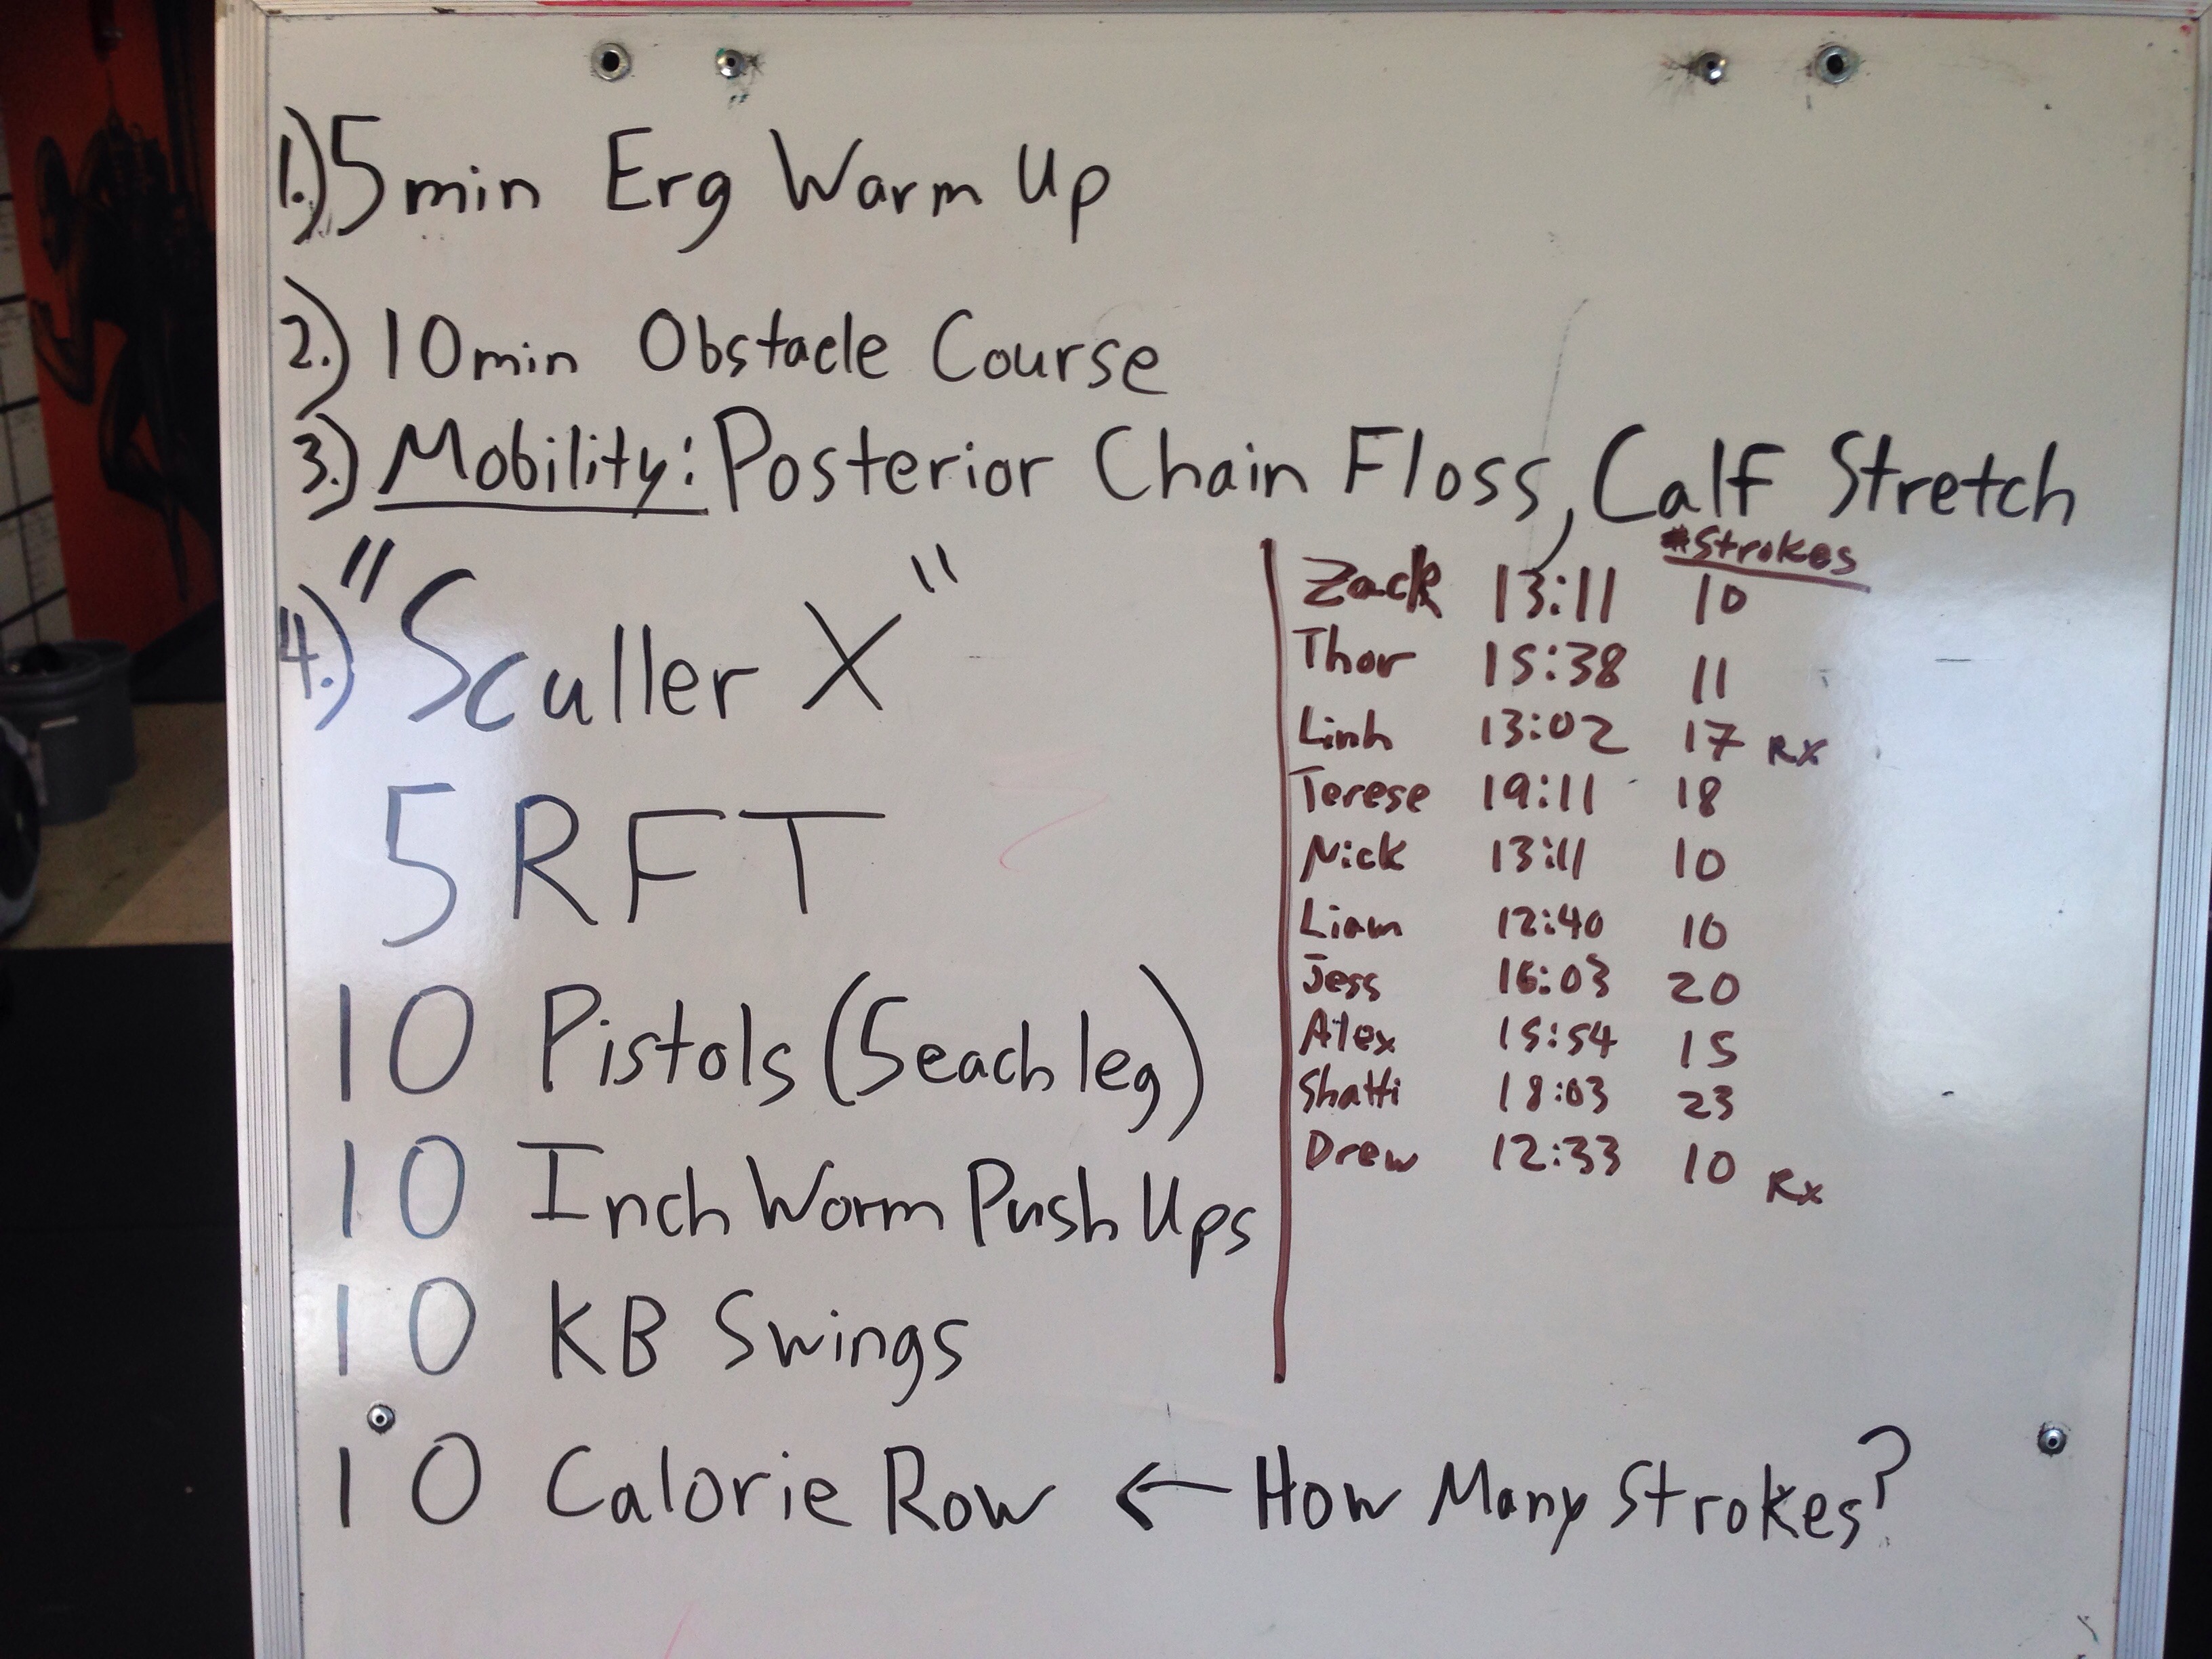 1.) 5 min Erg Warm Up
2.) 10 min Obstacle Course
3.) Mobility: Posterior Chain Floss, Calf Stretch
4.) "Sculler X"
5 RFT
10 Pistols (5 each leg)
10 Inch Worm Push Ups
10 KB Swings
10 Calorie Row ← How Many Strokes?
#Strokes
Zack 13:11 10
Thor 15:38 11
Linh 13:02 17 Rx
Terese 19:11 18
Nick 13:11 10
Liam 12:40 10
Jess 16:03 20
Alex 15:54 15
Shatti 18:03 23
Drew 12:33 10 Rx